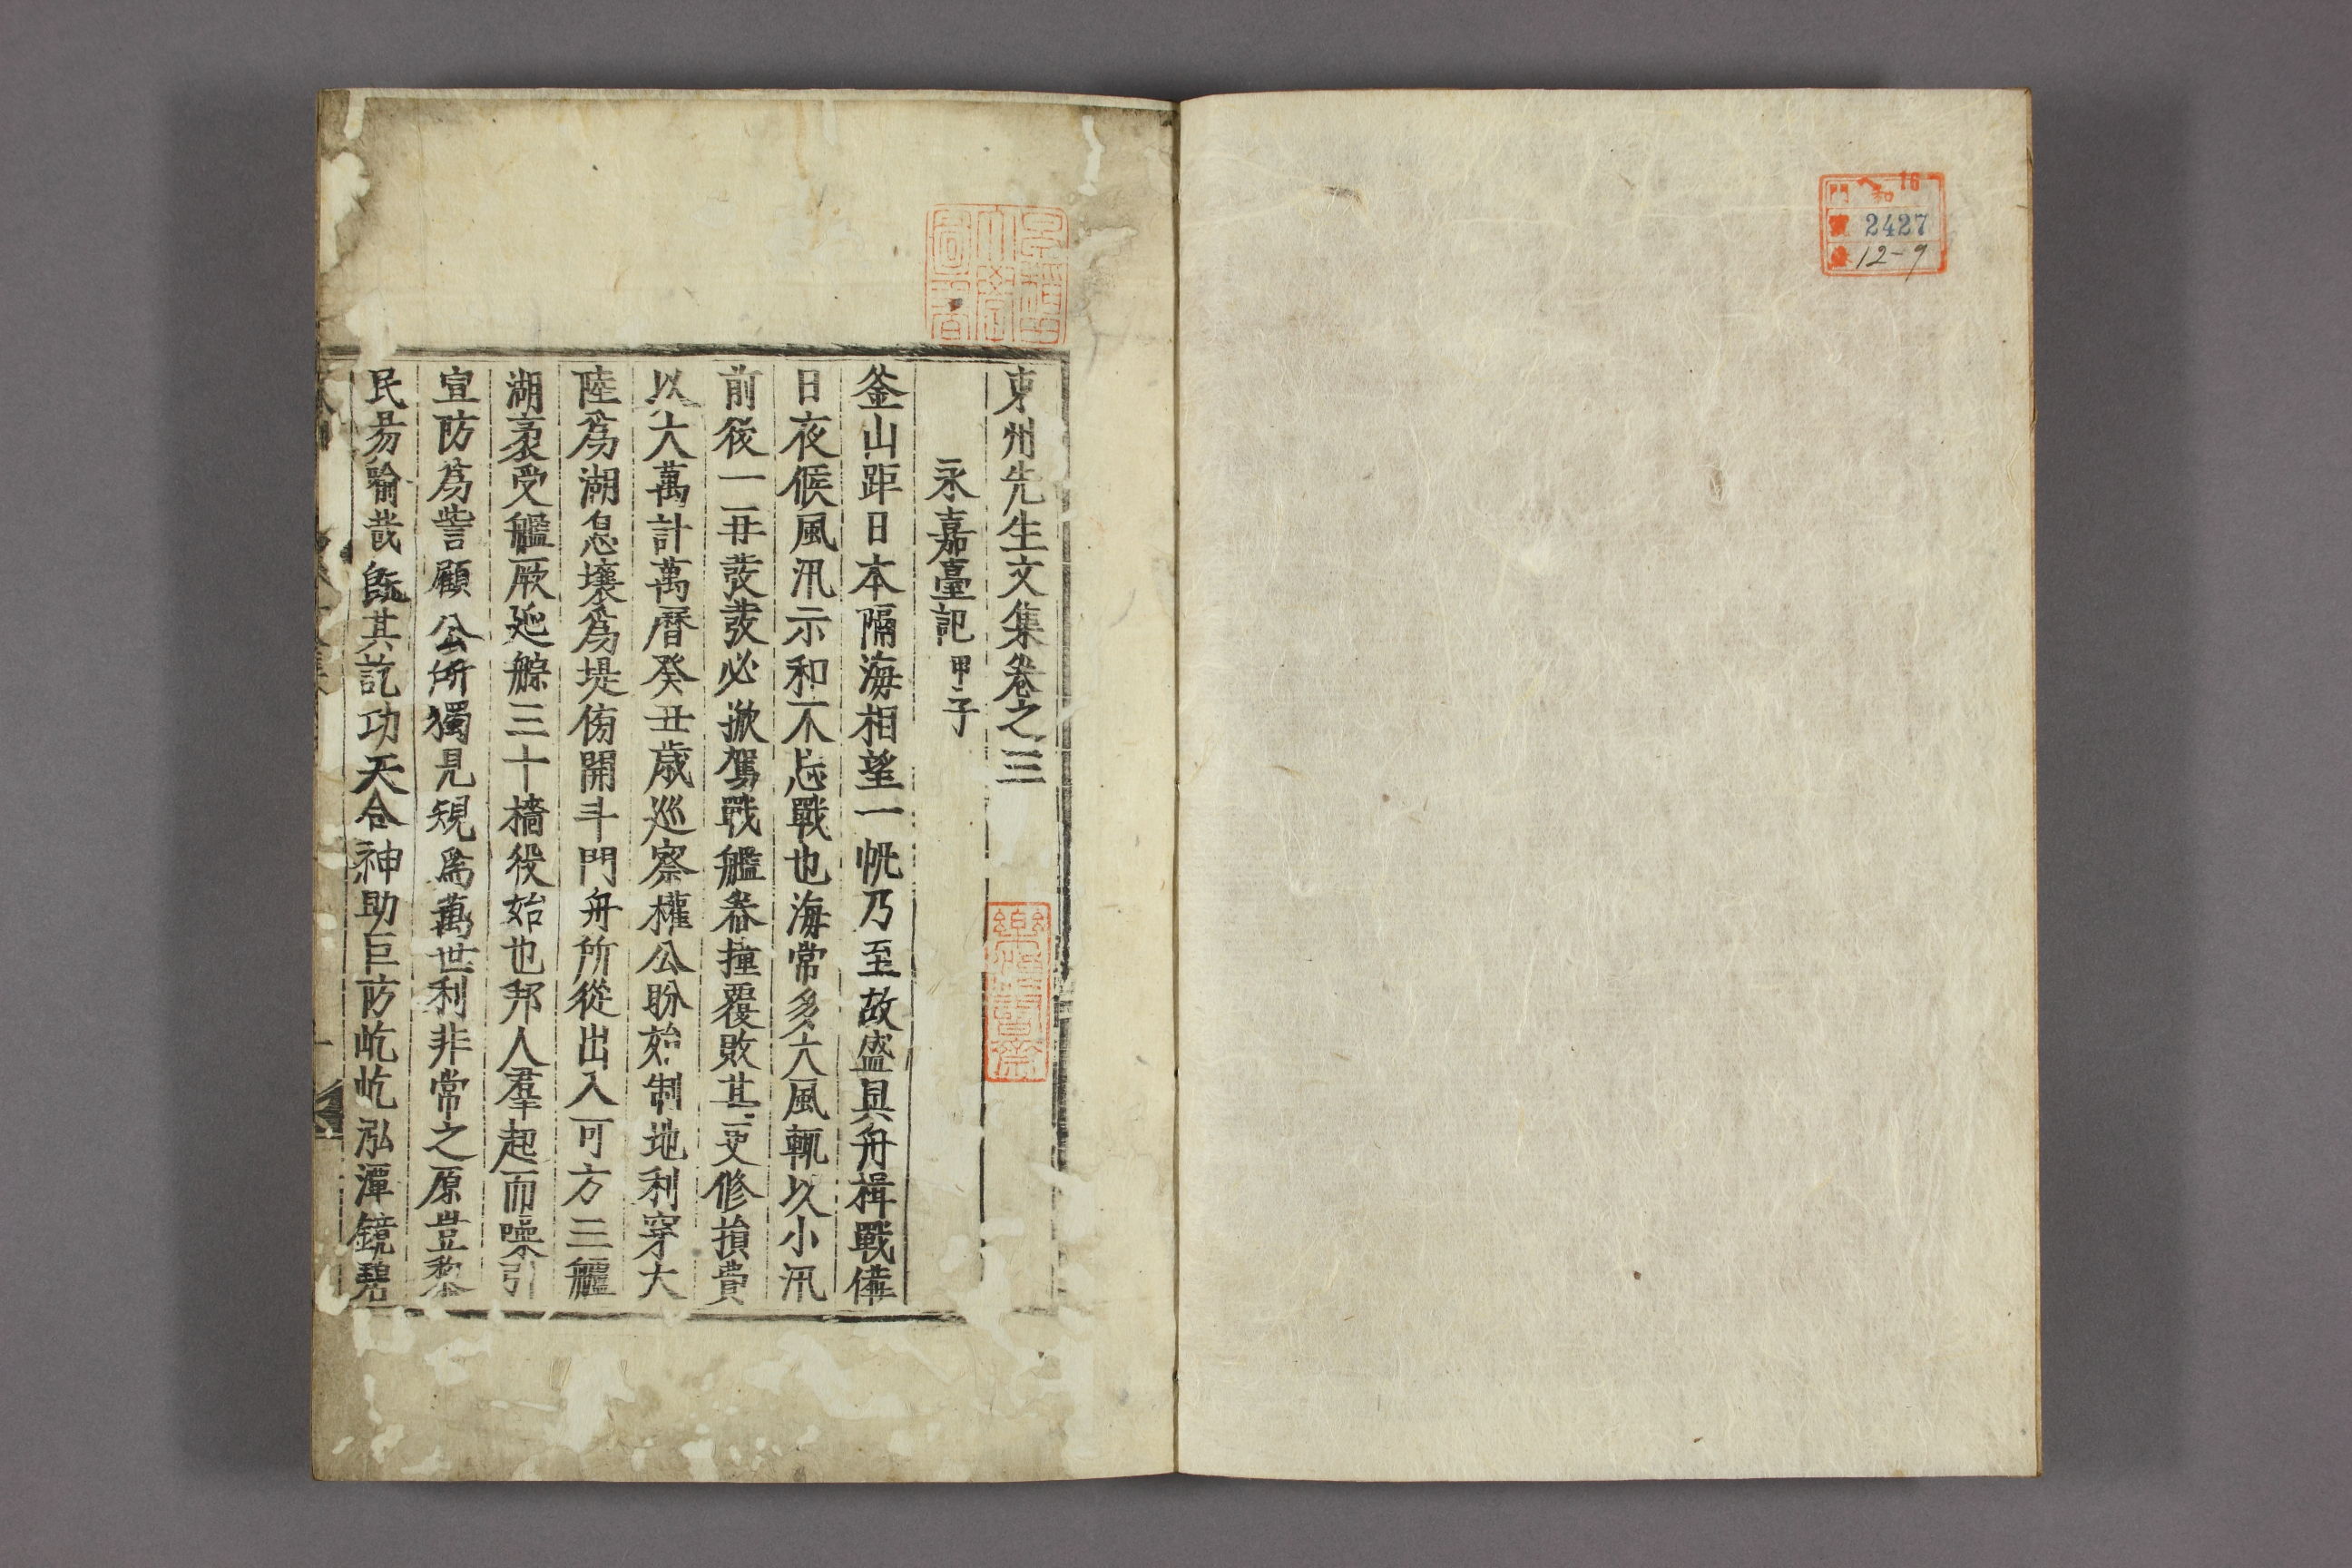 門 ヘ 16
和
號 2427
卷 12-9
早稻田大學圖書
東州先生文集卷之三
樂浪書齋
永嘉臺記 甲子
釜山距日本隔海相望一帆乃至故盛具舟楫戰備
日夜候風汛示和不忘戰也海常多大風輒以小汛
前後一二再發發必撤駕戰艦眷撞覆敗其更修損費
以大萬計萬曆癸丑歲巡察權公盼始制地利穿大
陸爲湖怠壤爲堤侑開斗門舟所從出入可方三艫
湖裹受艦厥延艅三十檣役始也邦人羣起而噪引
宣防爲訾顧公所獨見規爲萬世利非常之原豈黎
民昜喻哉旣其訖功天合神助巨防屹屹泓渾鏡碧